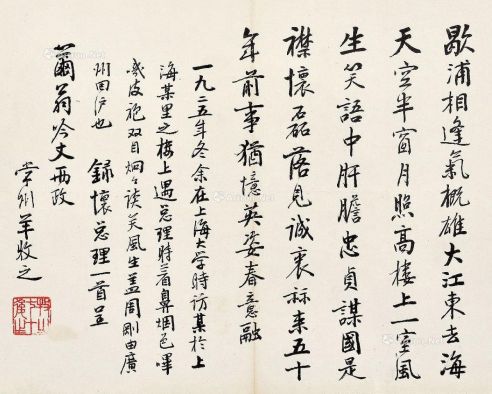 歇浦相逢氣概雄大江東去海
天空半窗月照高樓上一室風
生笑語中肝膽忠貞謀國是
襟懷磊落見誠衷来五十
年前事猶憶英姿春意融
一九二五年冬余在上海大学時訪某於上
海某里之楼上遇总理時着鼻烟色嗶
嘰皮袍双目炯々谈笑風生盖周剛由廣
州回沪也 録懷总理一首呈
繭翁吟丈两政
常州羊牧之